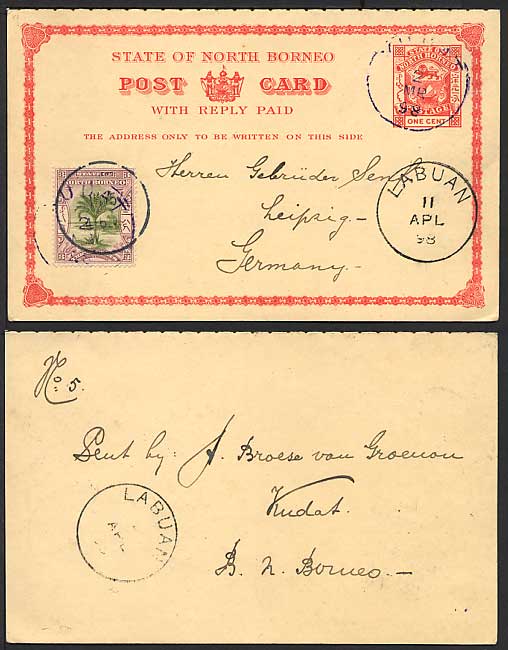 STATE OF NORTH BORNEO
POST CARD
WITH REPLY PAID
THE ADDRESS ONLY TO BE WRITTEN ON THIS SIDE
STATE OF
NORTH BORNEO
POSTAGE
ONE CENT
2
MR
98
STATE OF
NORTH BORNEO
Herren Gebrüder Senf
Leipzig —
Germany —
LABUAN
11
APL
98
No. 5.
Sent by: J. Broese van Groenou
Kudat.
B. N. Borneo. —
LABUAN
APL